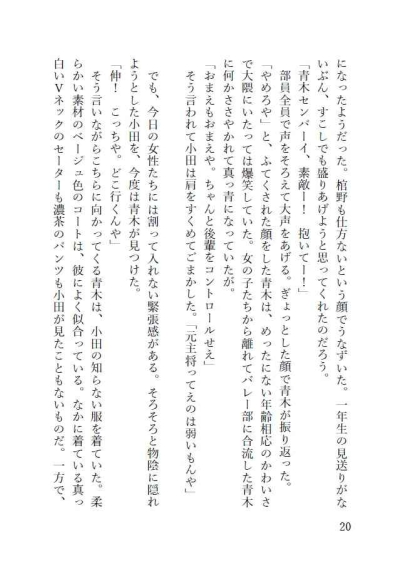 になったようだった。棺野も仕方ないという顔でうなずいた。一年生の見送りがな
いぶん、すこしでも盛りあげようと思ってくれたのだろう。
「青木センパーイ、素敵ー！　抱いてー！」
部員全員で声をそろえて大声をあげる。ぎょっとした顔で青木が振り返った。
「やめろや」と、ふてくされた顔をした青木は、めったにない年齢相応のかわいさ
で大隈にいたっては爆笑していた。女の子たちから離れてバレー部に合流した青木
に何かささやかれて真っ青になっていたが。
「おまえもおまえや。ちゃんと後輩をコントロールせえ」
そう言われて小田は肩をすくめてごまかした。「元主将ってえのは弱いもんや」
でも、今日の女性たちには割って入れない緊張感がある。そろそろと物陰に隠れ
ようとした小田を、今度は青木が見つけた。
「伸！　こっちや。どこ行くんや」
そう言いながらこちらに向かってくる青木は、小田の知らない服を着ていた。柔
らかい素材のベージュ色のコートは、彼によく似合っている。なかに着ている真っ
白いVネックのセーターも濃茶のパンツも小田が見たこともないものだ。一方で、
20